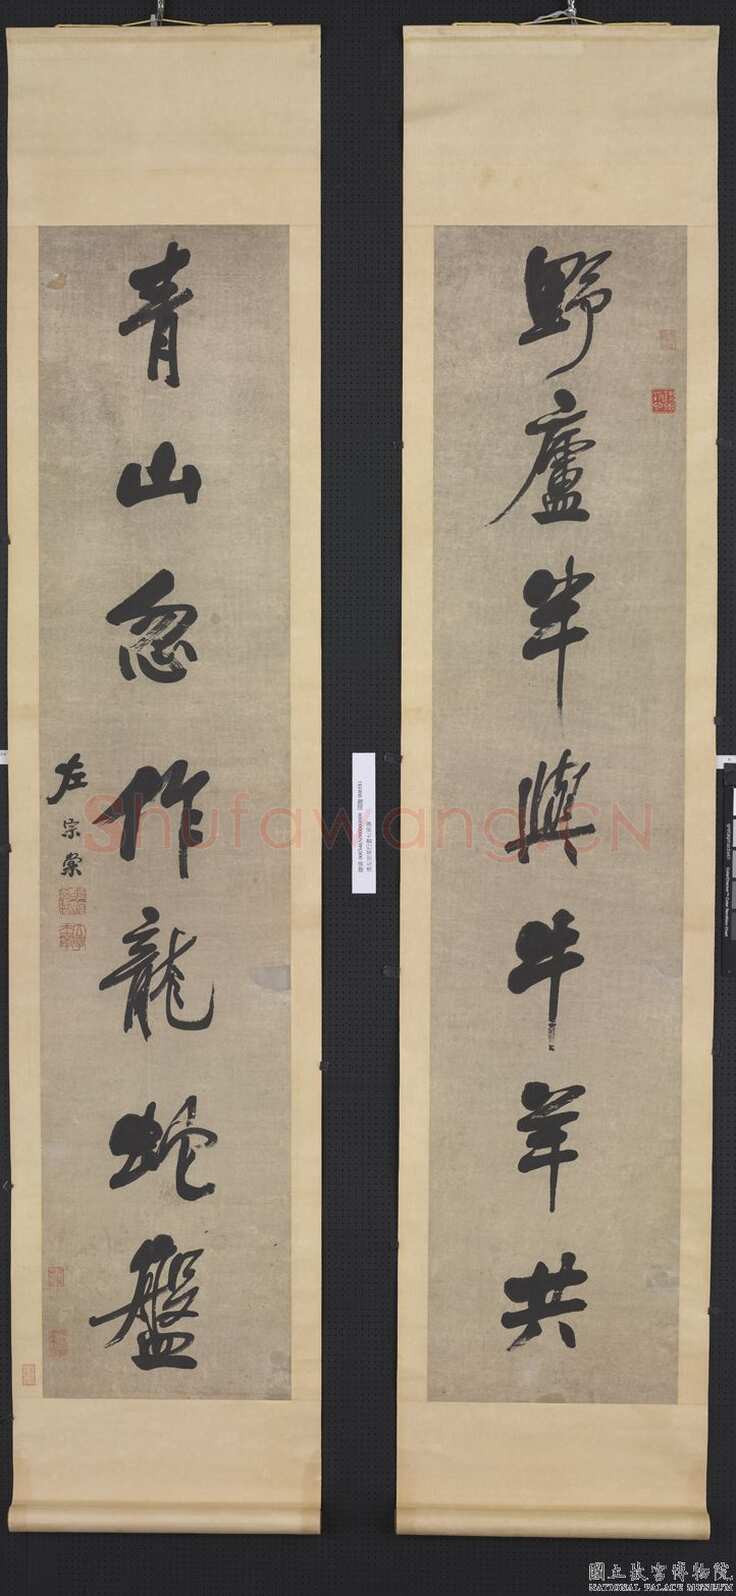 野廬半與牛羊共
青山忽作龍蛇盤
左宗棠
Shufawang.CN
國立故宮博物院
NATIONAL PALACE MUSEUM